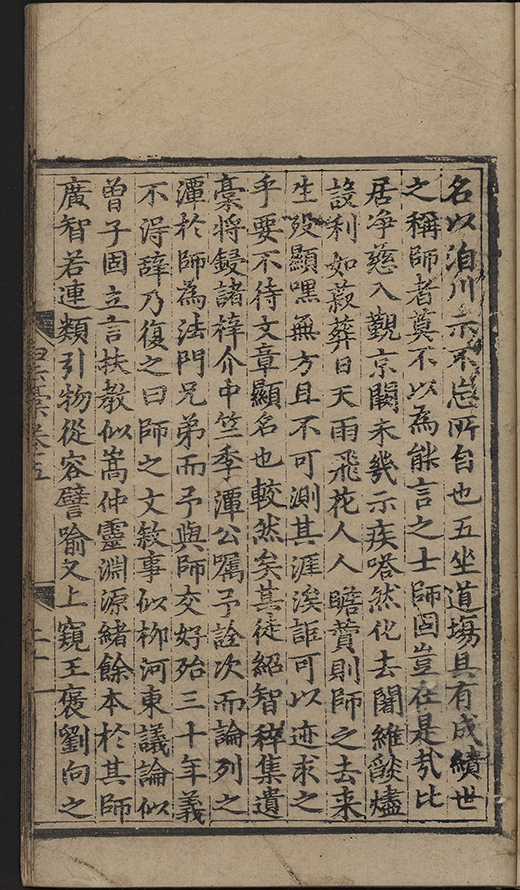 名以泊川示不忘所自也五坐道場具有成績世
之稱師者莫不以為能言之士師固豈在是㢤比
居净慈入覲京闕未幾示疾嗒然化去闍維燄燼
設利如菽葬日天雨飛花人人瞻贊則師之去来
生殁顯嘿無方且不可測其涯涘詎可以迹求之
乎要不待文章顯名也較然矣其徒紹智稡集遺
槀將鋟諸梓介中竺季潭公囑予詮次而論列之
潭於師為法門兄弟而予與師交好殆三十年義
不淂辭乃復之曰師之文敘事似柳河東議論似
曾子固立言扶教似嵩仲靈淵源緒餘本於其師
廣智若連類引物從容譬喻又上窺王褒劉向之